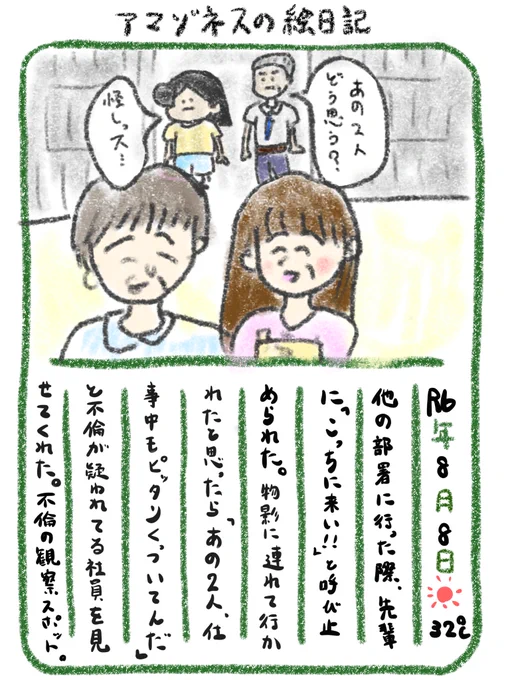 アマゾネスの絵日記
あの2人
どう思う?
怪しいっス…
R6年8月8日 32℃
他の部署に行った際、先輩
に「こっちに来い!!」と呼び止
められた。物影に連れて行か
れたと思ったら「あの2人、仕
事中もピッタンくっついてんだ」
と不倫が疑われてる社員を見
せてくれた。不倫の観察スポット。